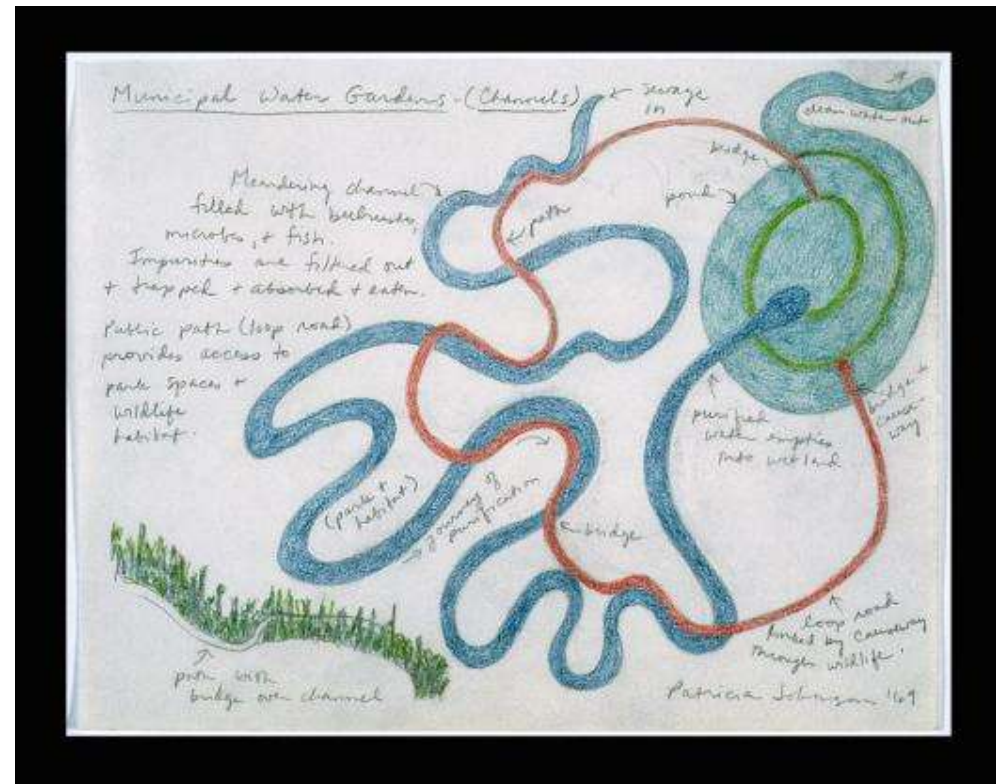 Municipal Water Gardens - (Channels)
sewage
in
clean water out
bridge
pond
path
Meandering channel
filled with bulrushes,
microbes, + fish.
Impurities are filtered out
+ trapped + absorbed + eaten.
Public path (loop road)
provides access to
park spaces +
wildlife
habitat.
bridge +
cause-
way
purified
water empties
into wetland
(park +
habitat)
journey of
purification
bridge
loop road
linked by causeway
through wildlife.
path with
bridge over channel
Patricia Johanson '69